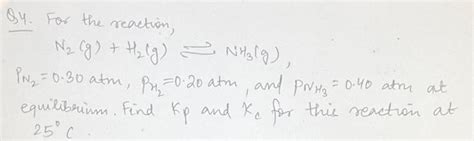 Q4. For the reaction,
N₂(g) + H₂(g) ⇌ NH₃(g),
P_N₂ = 0.30 atm, P_H₂ = 0.20 atm, and P_NH₃ = 0.40 atm at
equilibrium. Find Kp and Kc for this reaction at
25°C.